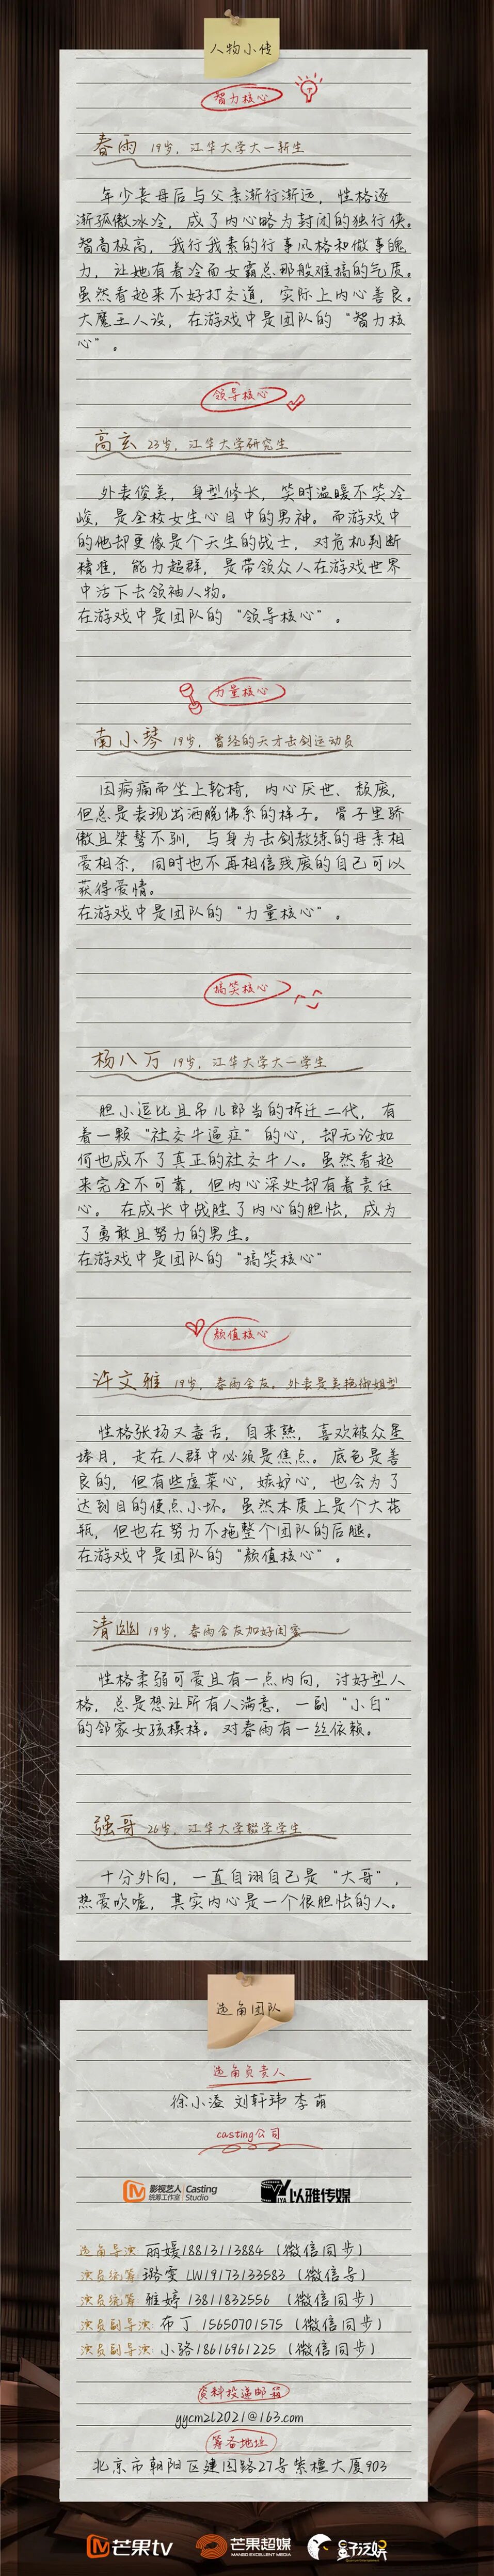 人物小传
智力核心
春雨 19岁，江华大学大一新生
年少丧母后与父亲渐行渐远，性格逐
渐孤傲冰冷，成了内心略为封闭的独行侠。
智商极高，我行我素的行事风格和做事魄
力，让她有着冷面女霸总那般难搞的气质。
虽然看起来不好打交道，实际上内心善良。
大魔王人设，在游戏中是团队的“智力核
心”。
领导核心
高玄 23岁，江华大学研究生
外表俊美，身型修长，笑时温暖不笑冷
峻，是全校女生心目中的男神。而游戏中
的他却更像是个天生的战士，对危机判断
精准，能力超群，是带领众人在游戏世界
中活下去领袖人物。
在游戏中是团队的“领导核心”。
力量核心
南小琴 19岁，曾经的天才击剑运动员
因病痛而坐上轮椅，内心厌世、颓废，
但总是表现出洒脱佛系的样子。骨子里骄
傲且桀骜不驯，与身为击剑教练的母亲相
爱相杀，同时也不再相信残废的自己可以
获得爱情。
在游戏中是团队的“力量核心”。
搞笑核心
杨八万 19岁，江华大学大一学生
胆小逗比且吊儿郎当的拆迁二代，有
着一颗“社交牛逼症”的心，却无论如
何也成不了真正的社交牛人。虽然看起
来完全不可靠，但内心深处却有着责任
心。在成长中战胜了内心的胆怯，成为
了勇敢且努力的男生。
在游戏中是团队的“搞笑核心”
颜值核心
许文雅 19岁，春雨舍友，外表是美艳御姐型
性格张扬又毒舌，自来熟，喜欢被众星
捧月，走在人群中必须是焦点。底色是善
良的，但有些虚荣心，嫉妒心，也会为了
达到目的使点小坏。虽然本质上是个大花
瓶，但也在努力不拖整个团队的后腿。
在游戏中是团队的“颜值核心”。
清幽 19岁，春雨舍友加好闺蜜
性格柔弱可爱且有一点内向，讨好型人
格，总是想让所有人满意，一副“小白”
的邻家女孩模样。对春雨有一丝依赖。
强哥 26岁，江华大学辍学学生
十分外向，一直自诩自己是“大哥”，
热爱吹嘘，其实内心是一个很胆怯的人。
选角团队
选角负责人
徐小溢 刘轩玮 李萌
casting公司
影视艺人统筹工作室 Casting Studio 以雅传媒
选角导演 丽媛18813113884（微信同步）
演员统筹 璐雯 LW19173133583（微信号）
演员统筹 雅婷 13811832556（微信同步）
演员副导演 布丁 15650701575（微信同步）
演员副导演 小骆18616961225（微信同步）
资料投递邮箱
yycmzl2021@163.com
筹备地址
北京市朝阳区建国路27号紫檀大厦903
芒果tv 芒果超媒 MANGO EXCELLENT MEDIA 量子泛娱